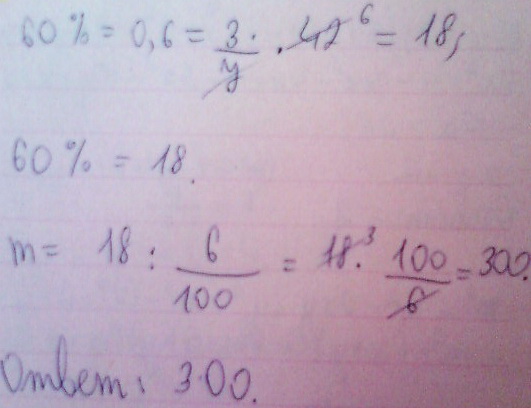 60% = 0,6 = 3/7 · 42 6 = 18,
60% = 18.
m = 18 : 6/100 = 18 · 3 100/6 = 300.
Ответ: 300.